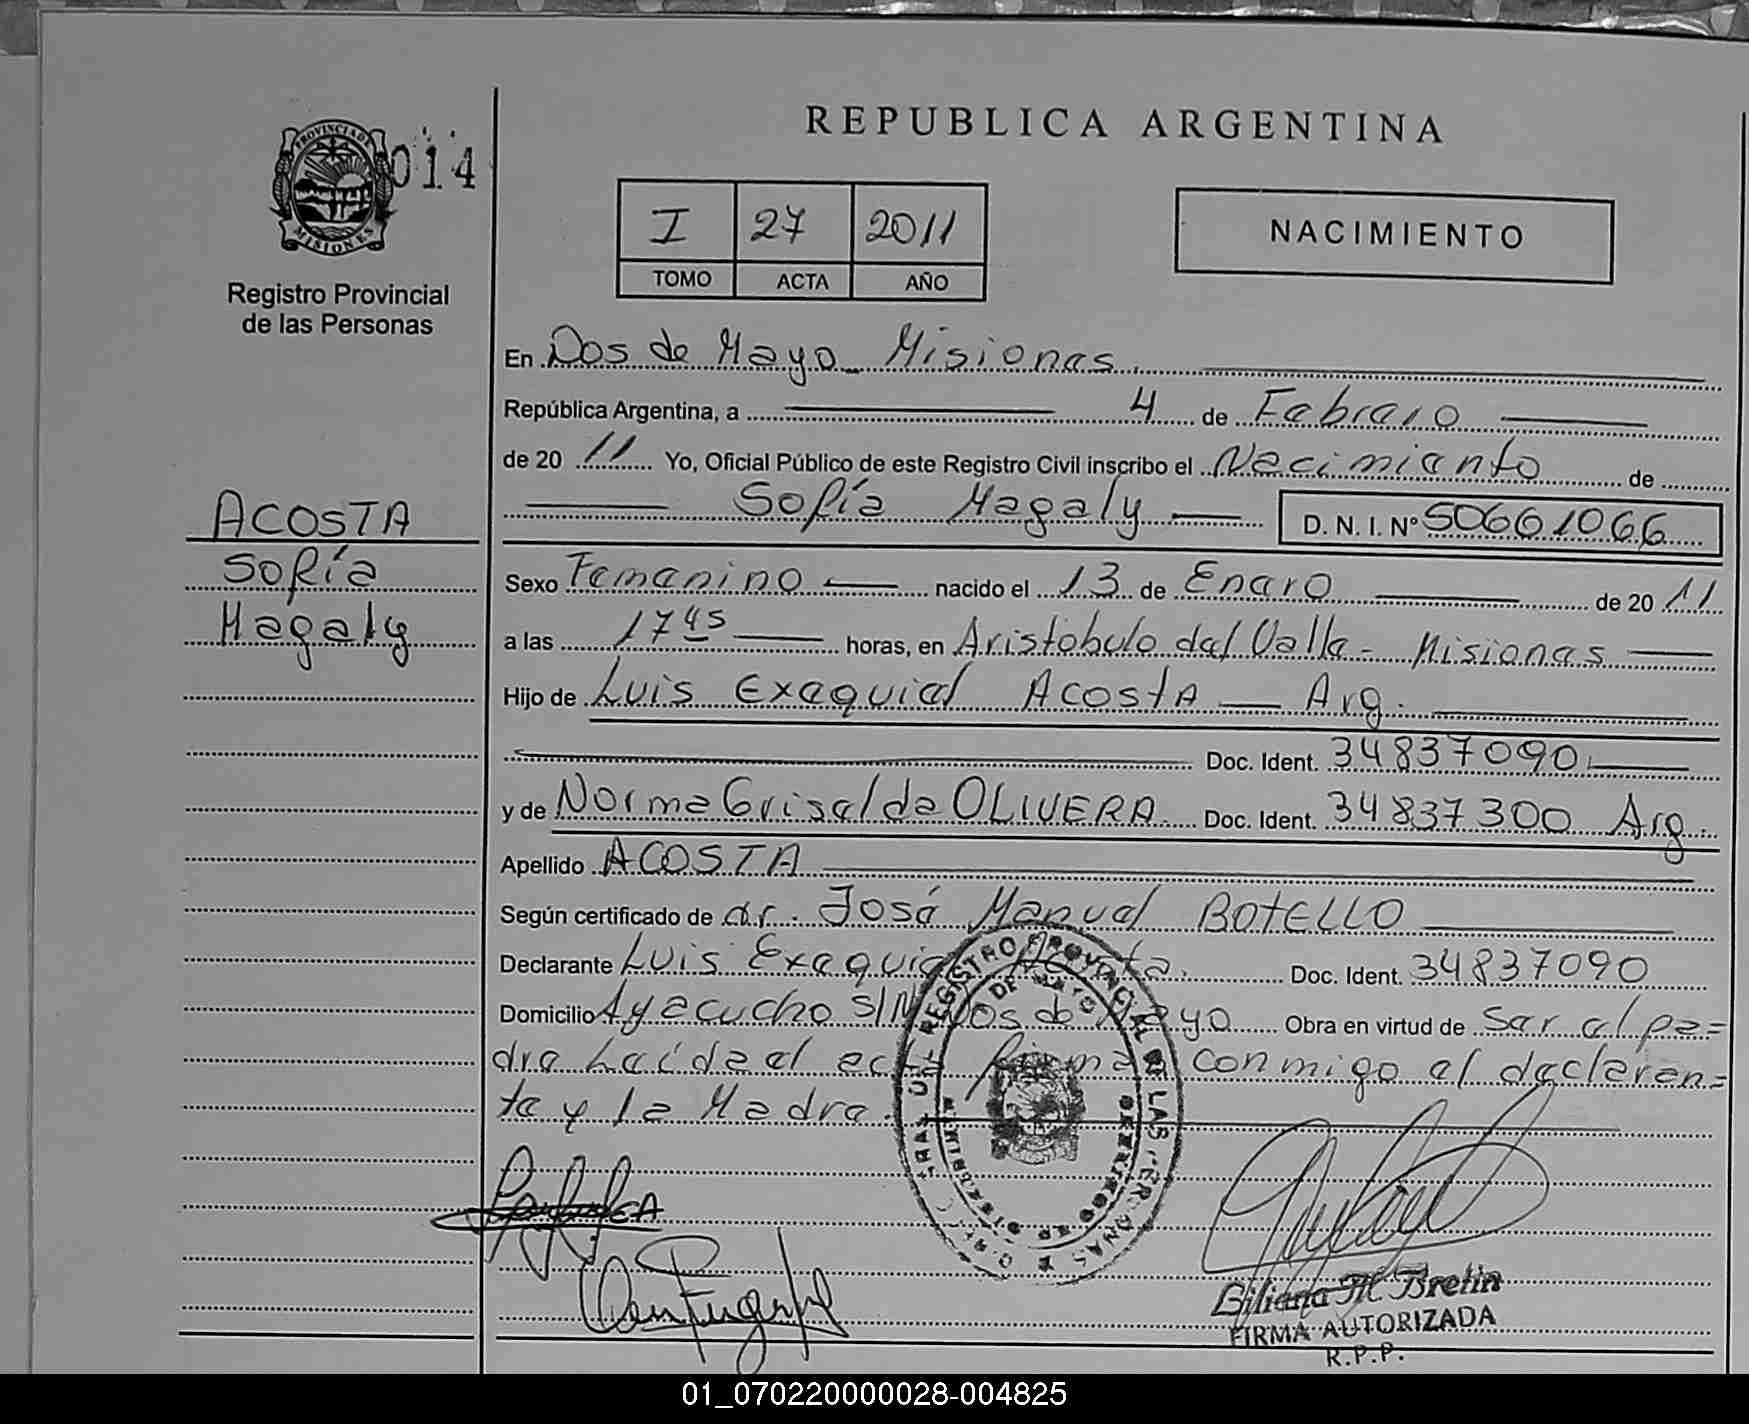 REPUBLICA ARGENTINA
PROVINCIA DE MISIONES
014
Registro Provincial
de las Personas
I 27 2011
TOMO ACTA AÑO
NACIMIENTO
En Dos de Mayo Misiones
República Argentina, a 4 de Febrero
de 20 11 Yo, Oficial Público de este Registro Civil inscribo el Nacimiento de
Sofía Magaly D. N. I. Nº 50661066
ACOSTA
Sofía
Magaly
Sexo Femenino nacido el 13 de Enero de 20 11
a las 17 45 horas, en Aristóbulo del Valle - Misiones
Hijo de Luis Exequiel Acosta Arg.
Doc. Ident. 34837090
y de Norma Griselda OLIVERA Doc. Ident. 34837300 Arg.
Apellido ACOSTA
Según certificado de dr. José Manuel BOTELLO
Declarante Luis Exequiel Acosta. Doc. Ident. 34837090
Domicilio Ayacucho S/N Dos de Mayo Obra en virtud de ser el pa=
dre Leída el acta firma conmigo el declaran=
te y la Madre.
REGISTRO PROVINCIAL DE LAS PERSONAS
DOS DE MAYO
Biliana M. Bretin
FIRMA AUTORIZADA
R.P.P.
01_070220000028-004825